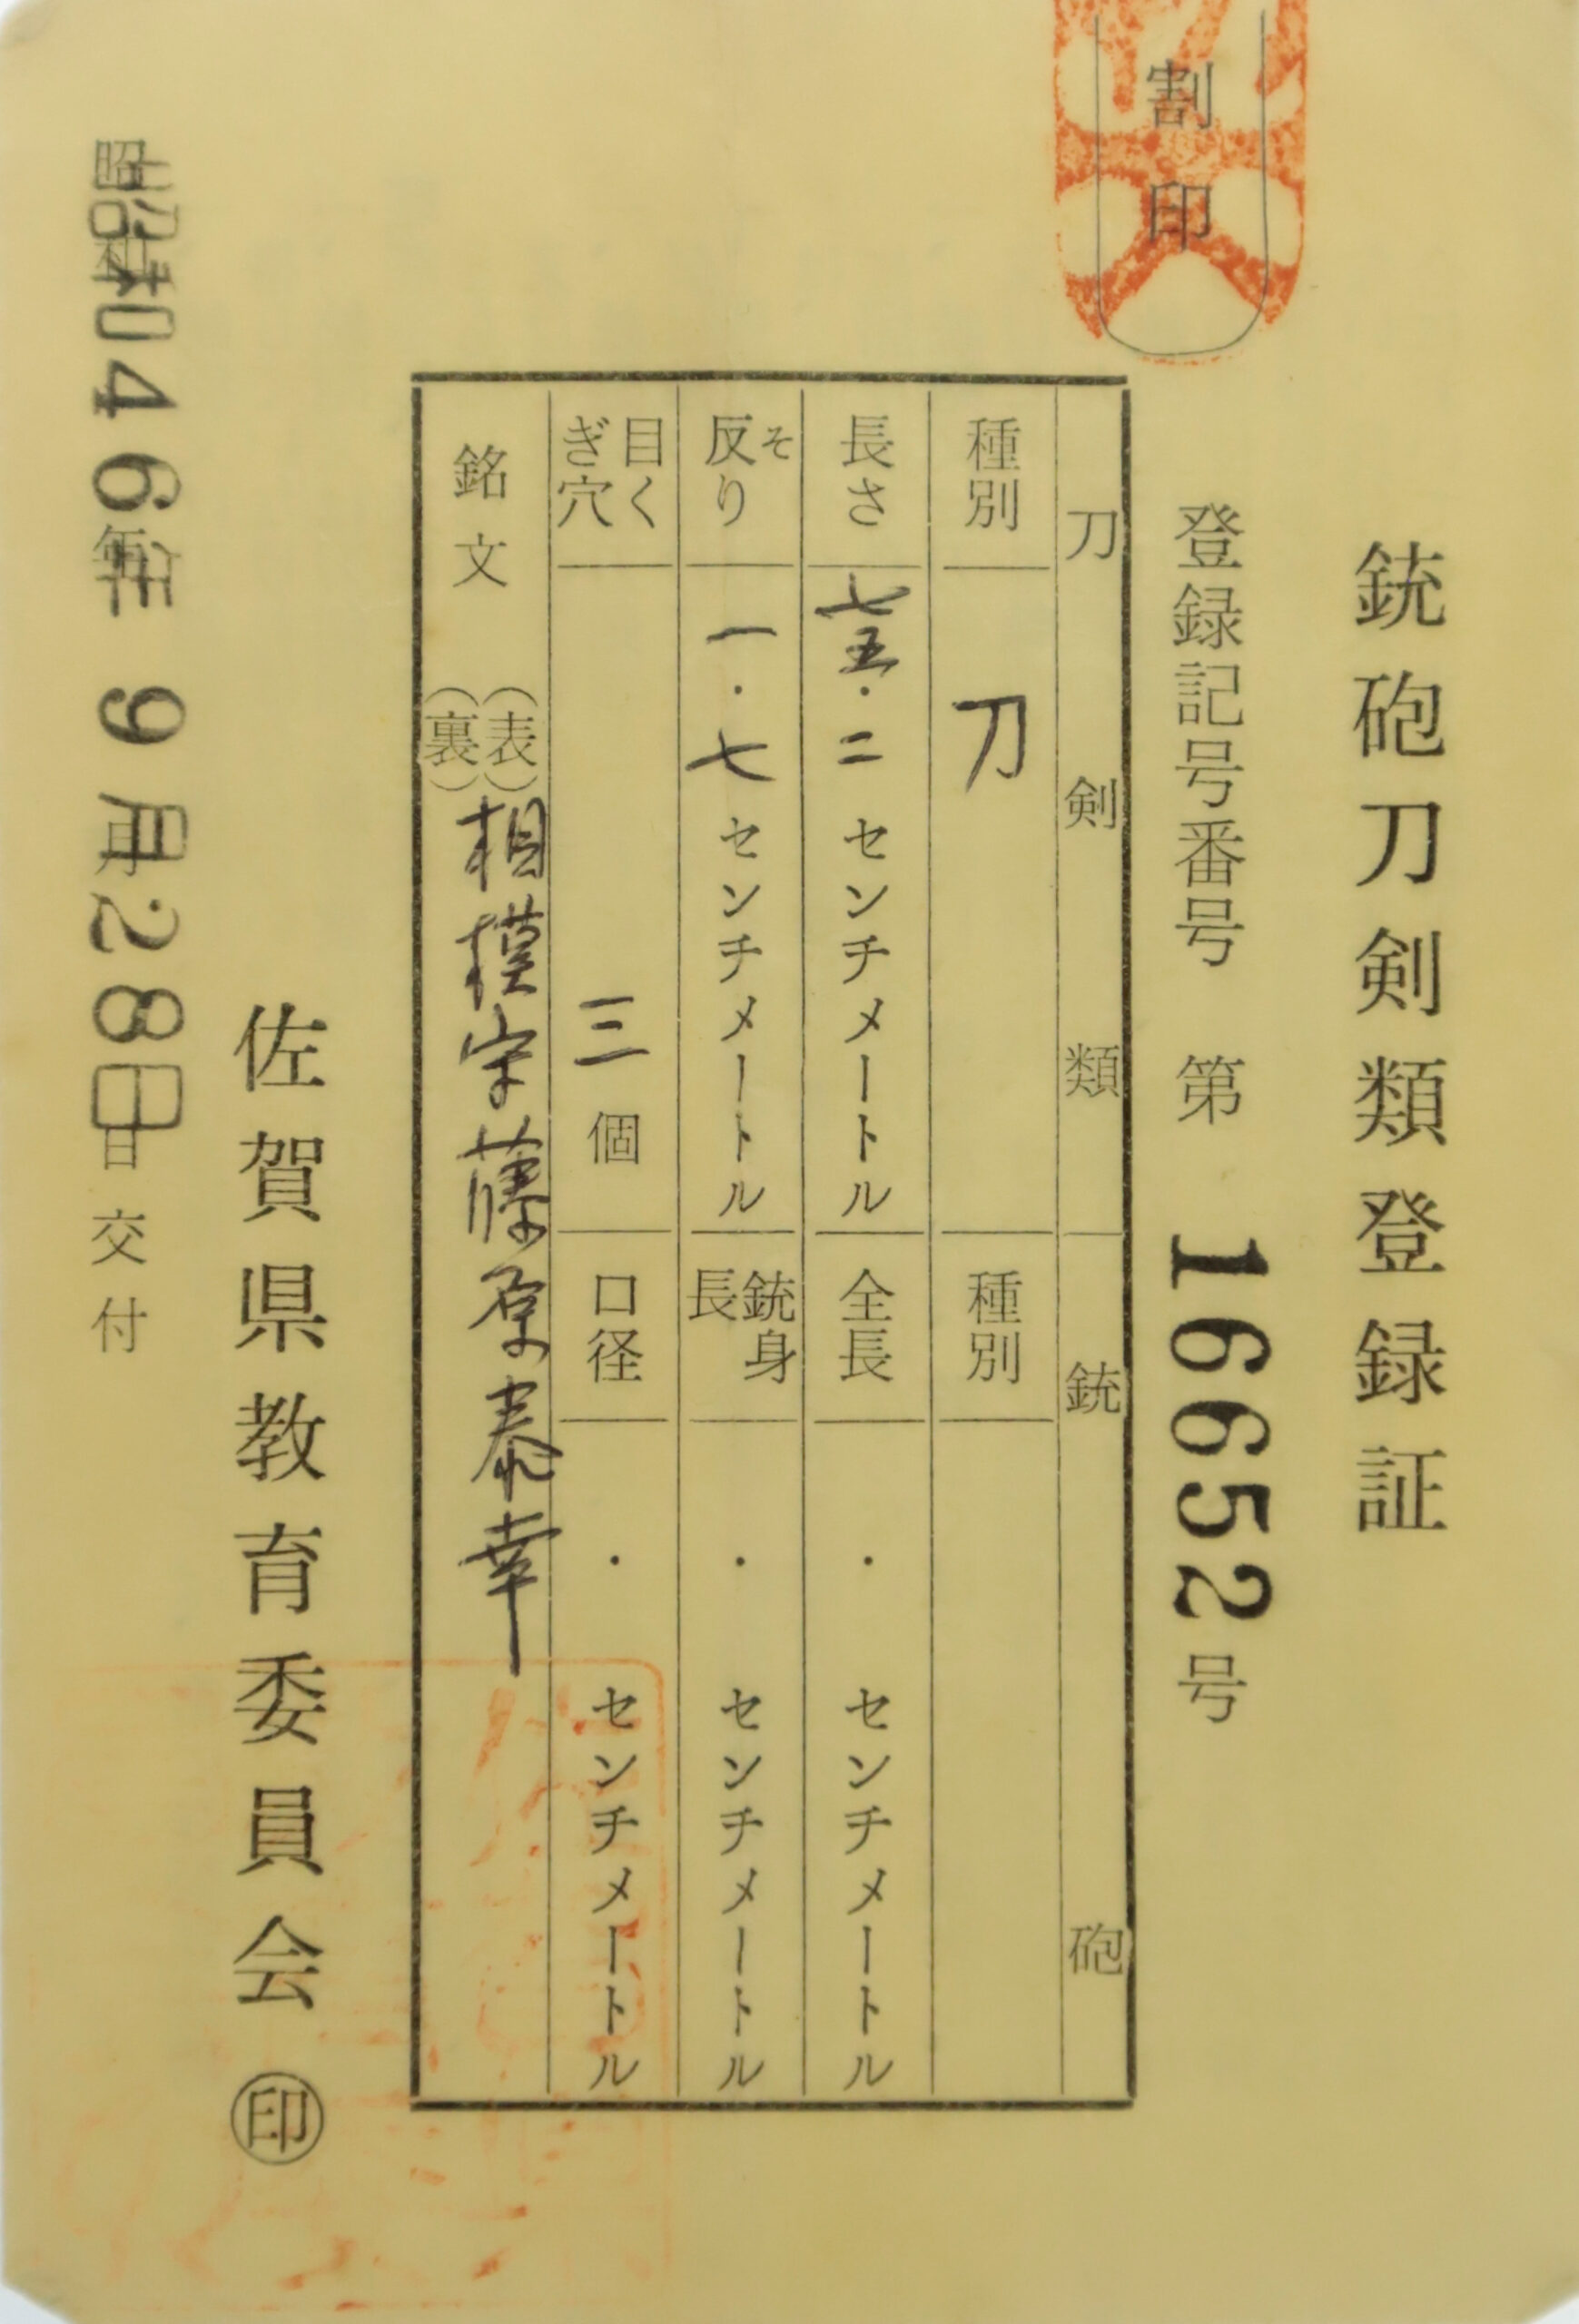 割印
銃砲刀剣類登録証
登録記号番号 第 16652 号
刀剣類
銃砲
種別 刀
種別
長さ 七五・二 センチメートル
全長 ・ センチメートル
反り そ 一・七 センチメートル
銃身長 ・ センチメートル
目くぎ穴 三 個
口径 ・ センチメートル
銘文 (表) (裏) 相模守藤原泰幸
佐賀県教育委員会 ㊞
昭和46年 9月28日 交付